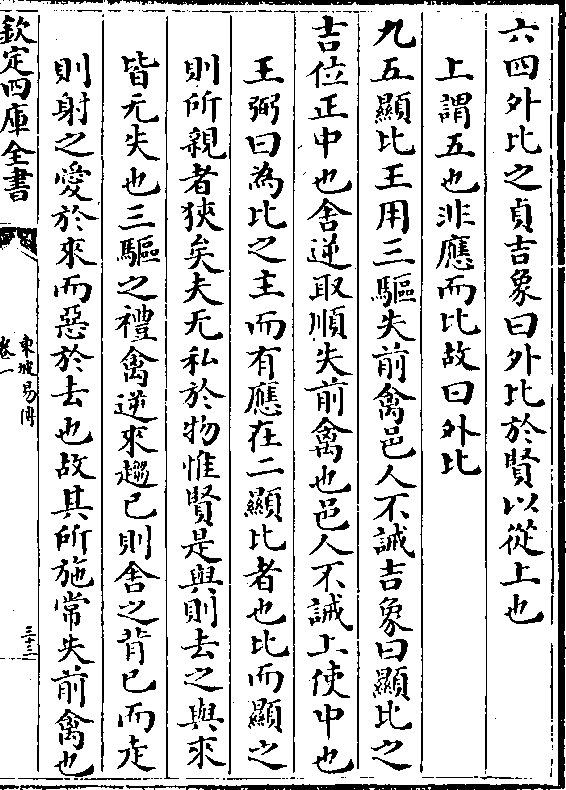 六四外比之貞吉象曰外比於賢以從上也
上謂五也非應而比故曰外比
九五顯比王用三驅失前禽邑人不誡吉象曰顯比之
吉位正中也舍逆取順失前禽也邑人不誡上使中也
王弼曰為比之主而有應在二顯比者也比而顯之
則所親者狹矣夫无私於物惟賢是與則去之與來
皆无失也三驅之禮禽逆來趨已則舍之背已而走
則射之愛於來而惡於去也故其所施常失前禽也
欽定四庫全書
東坡易傳
卷一
三十三